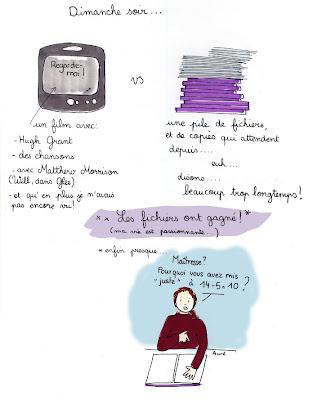 Dimanche soir...
Regarde-moi !
vs
un film avec :
- Hugh Grant
- des chansons
- avec Matthew Morrison
(Will, dans Glee)
- et qu'en plus je n'avais
pas encore vu !
une pile de fichiers,
et de copies qui attendent
depuis....
euh....
disons....
beaucoup trop longtemps !
** Les fichiers ont gagné !*
(ma vie est passionnante...)
* enfin presque...
Maîtresse ?
Pourquoi vous avez mis
"juste" à 14-5=10 ?
Auré